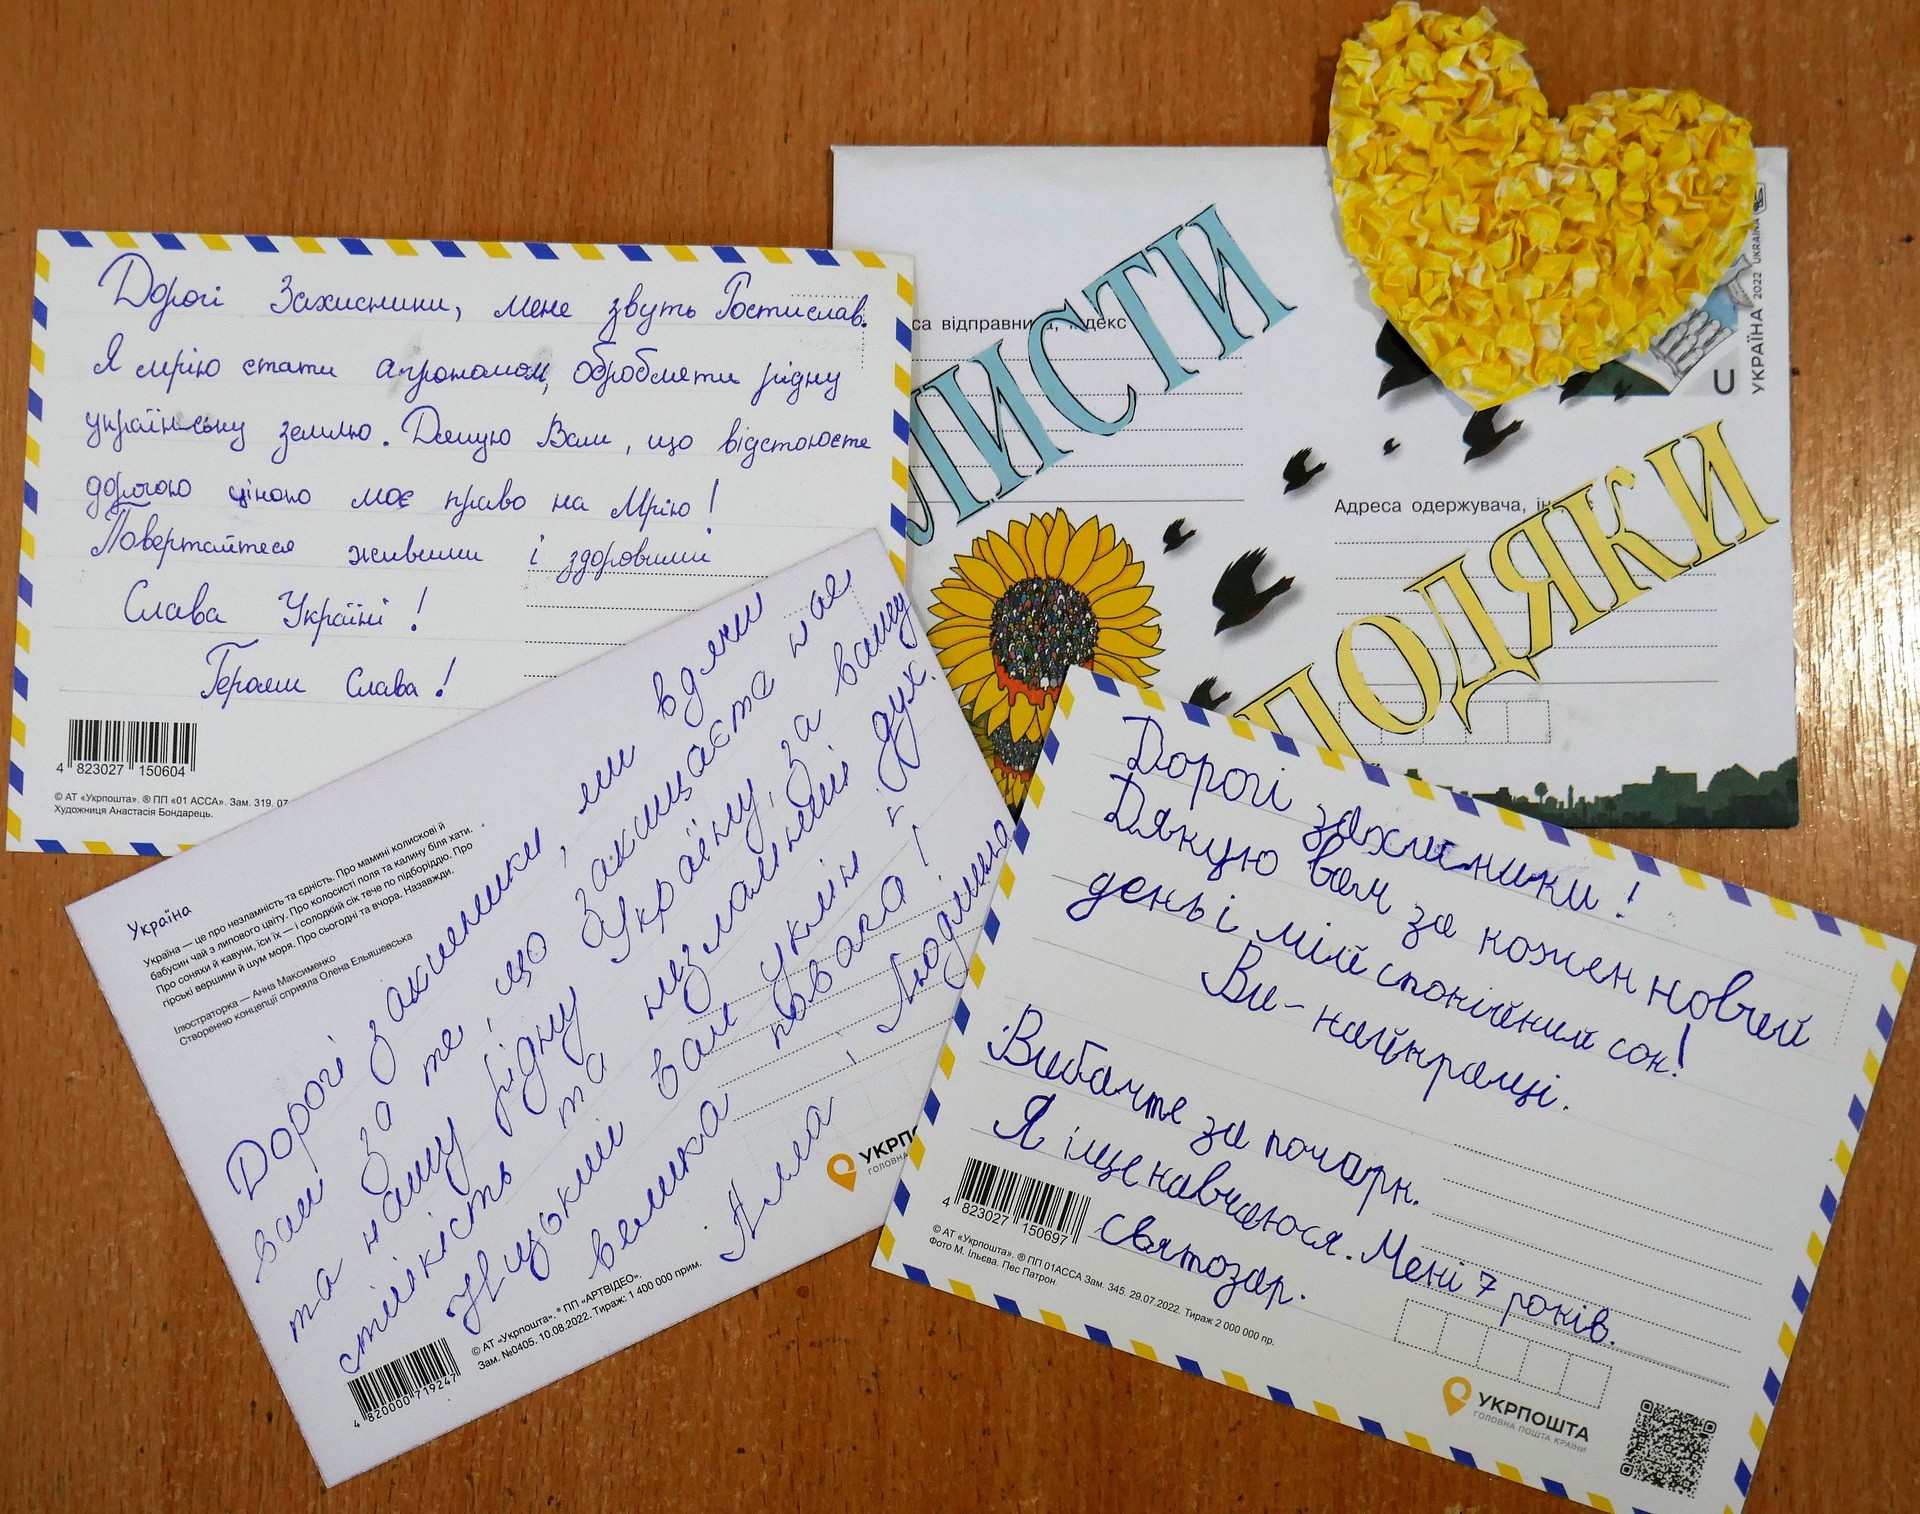 Дорогі Захисники, мене звуть Ростислав.
Я мрію стати агрономом, обробляти рідну
українську землю. Дякую Вам, що відстоюєте
дорогою ціною моє право на Мрію!
Повертайтеся живими і здоровими
Слава Україні!
Героям Слава!
4 823027 150604
© АТ «Укрпошта». ® ПП «01 АССА». Зам. 319. 07
Художниця Анастасія Бондарець.
ЛИСТИ
са відправника, індекс
УКРАЇНА 2022 UKRAINA
U
Адреса одержувача, ін
ПОДЯКИ
Україна
Україна — це про незламність та єдність. Про мамині колискові й
бабусин чай з липового цвіту. Про колосисті поля та калину біля хати.
Про соняхи й кавуни, їси їх — і солодкий сік тече по підборіддю. Про
гірські вершини й шум моря. Про сьогодні та вчора. Назавжди.
Ілюстраторка — Анна Максименко
Створенню концепції сприяла Олена Ельяшевська
Дорогі захисники, ми вдячні
вам за те, що захищаєте нас
та нашу рідну Україну, за вашу
стійкість та незламний дух.
Низький вам уклін і
велика повага!
Алла, Людмила
УКРП
ГОЛОВНА
4 820000 719247
© АТ «Укрпошта». ® ПП «АРТВІДЕО».
Зам. №0405. 10.08.2022. Тираж: 1 400 000 прим.
Дорогі захисники!
Дякую вам за кожен новий
день і мій спокійний сон!
Ви - найкращі.
Вибачте за почерк.
Я іще навчаюся. Мені 7 років.
Святозар.
4 823027 150697
© АТ «Укрпошта». ® ПП 01АССА Зам. 345. 29.07.2022. Тираж 2 000 000 пр.
Фото М. Ільєва. Пес Патрон.
УКРПОШТА
ГОЛОВНА ПОШТА КРАЇНИ